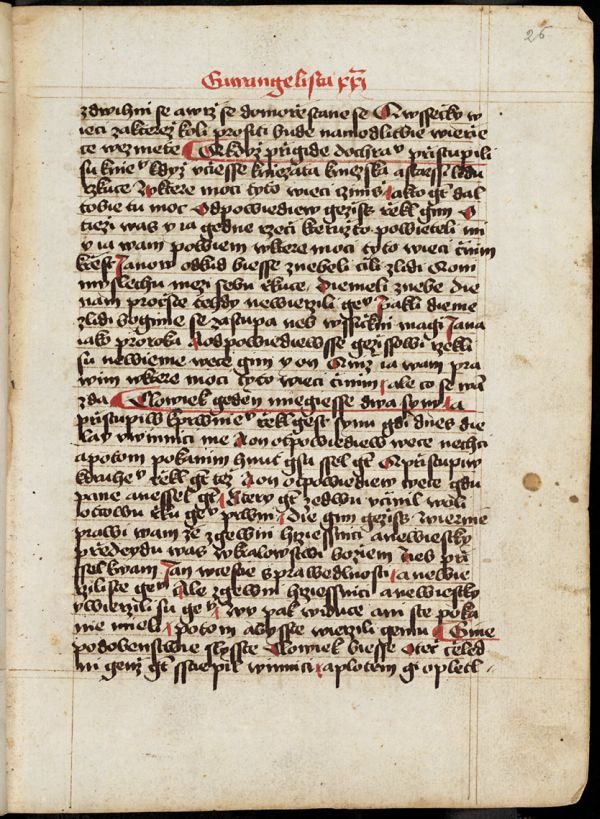 26
Ewangelista xxi
zdwihni se a wrz se do morze stane se A wssecky w
ieci za kterez koli prositi bude na modlitwie wierie
ce wezmete A kdyz prigide do chramu pristupili
su k niemu kdyz uciesse kniezata kniezska a starssi lidu
rzkuce W ktere moci tyto wieci cinis a kto gt dal
tobie tu moc Odpowiediew gezis rekl gim O
tiezi was y ia gedne rzeci kteruzto powieteli mi
y ia wam powiem w ktere moci tyto wieci cinim
krzest Janow odkud biesse z nebeli cili z lidi A oni
myslechu mezi sebu rkuce Diemeli z nebe die
nam procste tehdy newierzili gemu Pakli dieme
z lidi bogime se zastupa neb wssickni magi Jana
iako proroka A odpowiediewsse gezissowi rzekli
su newieme wece gim y on Aniz ia wam pra
wim w ktere moci tyto wieci cinim ale co se wam
zda Clowiek geden miegiesse dwa syny a
pristupiw k prwniemu rekl gest synu gdi dnes die
lat y winnici me A on otpowiediew wece nechci
a potom pokanim hnut gsa ssel gt A pristupiw
k druhemu rekl gt tez A on otpowiediew wece gdu
pane a nessel gt A ktery gt ze dwu ucinil woli
otcowu rku gemu prwni Die gim gezis wierzie
prawi wam ze zgewni hrziessnici a newiestky
predeydu was w kralowstwi boziem Nes przi
ssel k wam Jan w cestie sprawedlnosti a newie
rzili ste gemu Ale zgewni hrziessnici a newiestky
uwierzili su gemu Wy pak widuce ani ste poka
nie mieli potom abysste wierzili gemu Gine
podobenstwie slysste Clowiek biesse otec celed
ni genz gt sstiepil winnici a plotem gi opletl